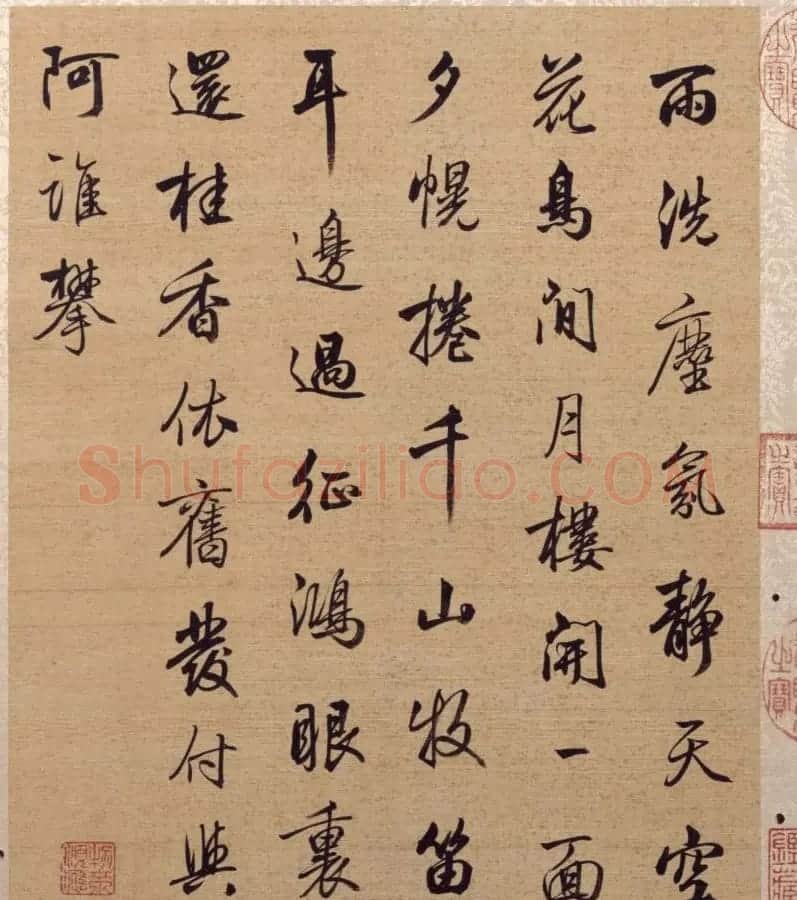 雨洗塵氛靜天空
花鳥間月樓開一面
夕幌捲千山牧笛
耳邊過征鴻眼裏
還桂香依舊發付與
阿誰攀
Shufaziliao.com